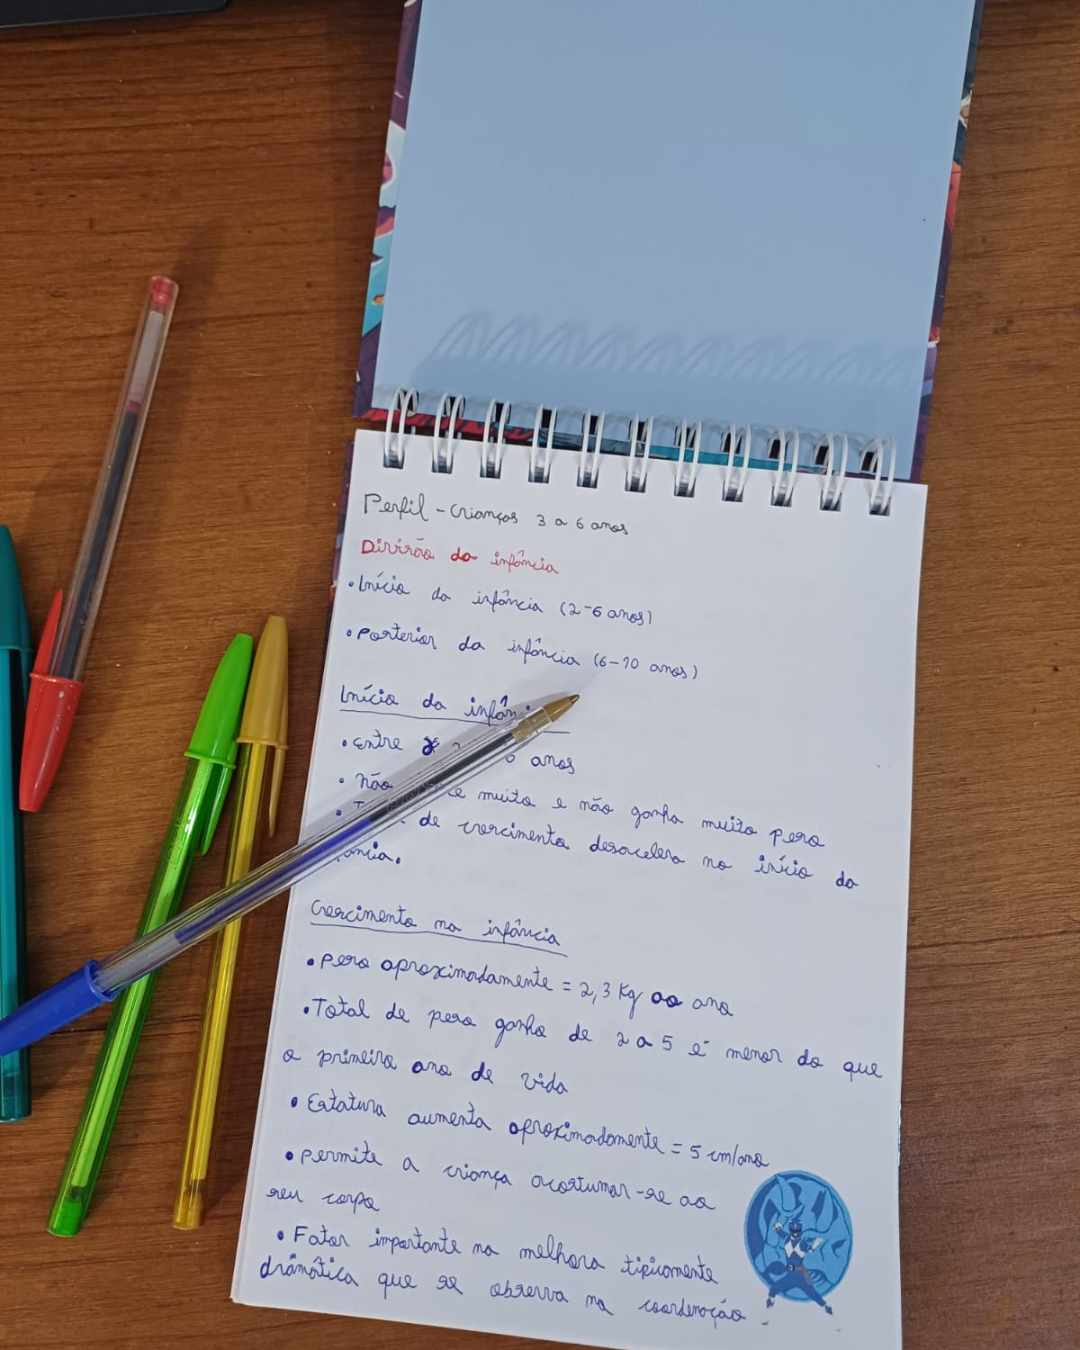 Perfil - Crianças 3 a 6 anos
Divisão da infância
• Início da infância (2-6 anos)
• Posterior da infância (6-10 anos)
Início da
• Entre anos
• não muito e não ganha muito peso
• de crescimento desacelera no início da
Crescimento na infância
• Peso aproximadamente = 2,3 Kg ao ano
• Total de peso ganho de 2 a 5 é menor do que
o primeiro ano de vida
• Estatura aumenta aproximadamente = 5 cm/ano
• Permite a criança acostumar-se ao
seu corpo
• Fator importante na melhora tipicamente
dramática que se observa na coordenação.